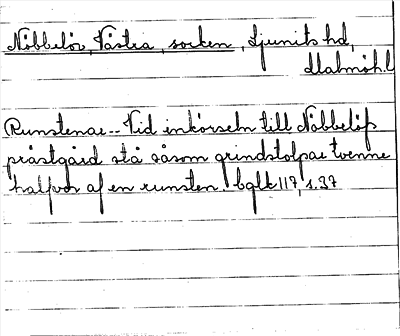 Nöbbelöv, Västra, socken, Ljunits hd,
Malmöh.l
Runstenar.- Vid inkörseln till Nöbbelöfs
prästgård stå såsom grindstolpar tvenne
halfvor af en runsten. bglk 117, s. 37